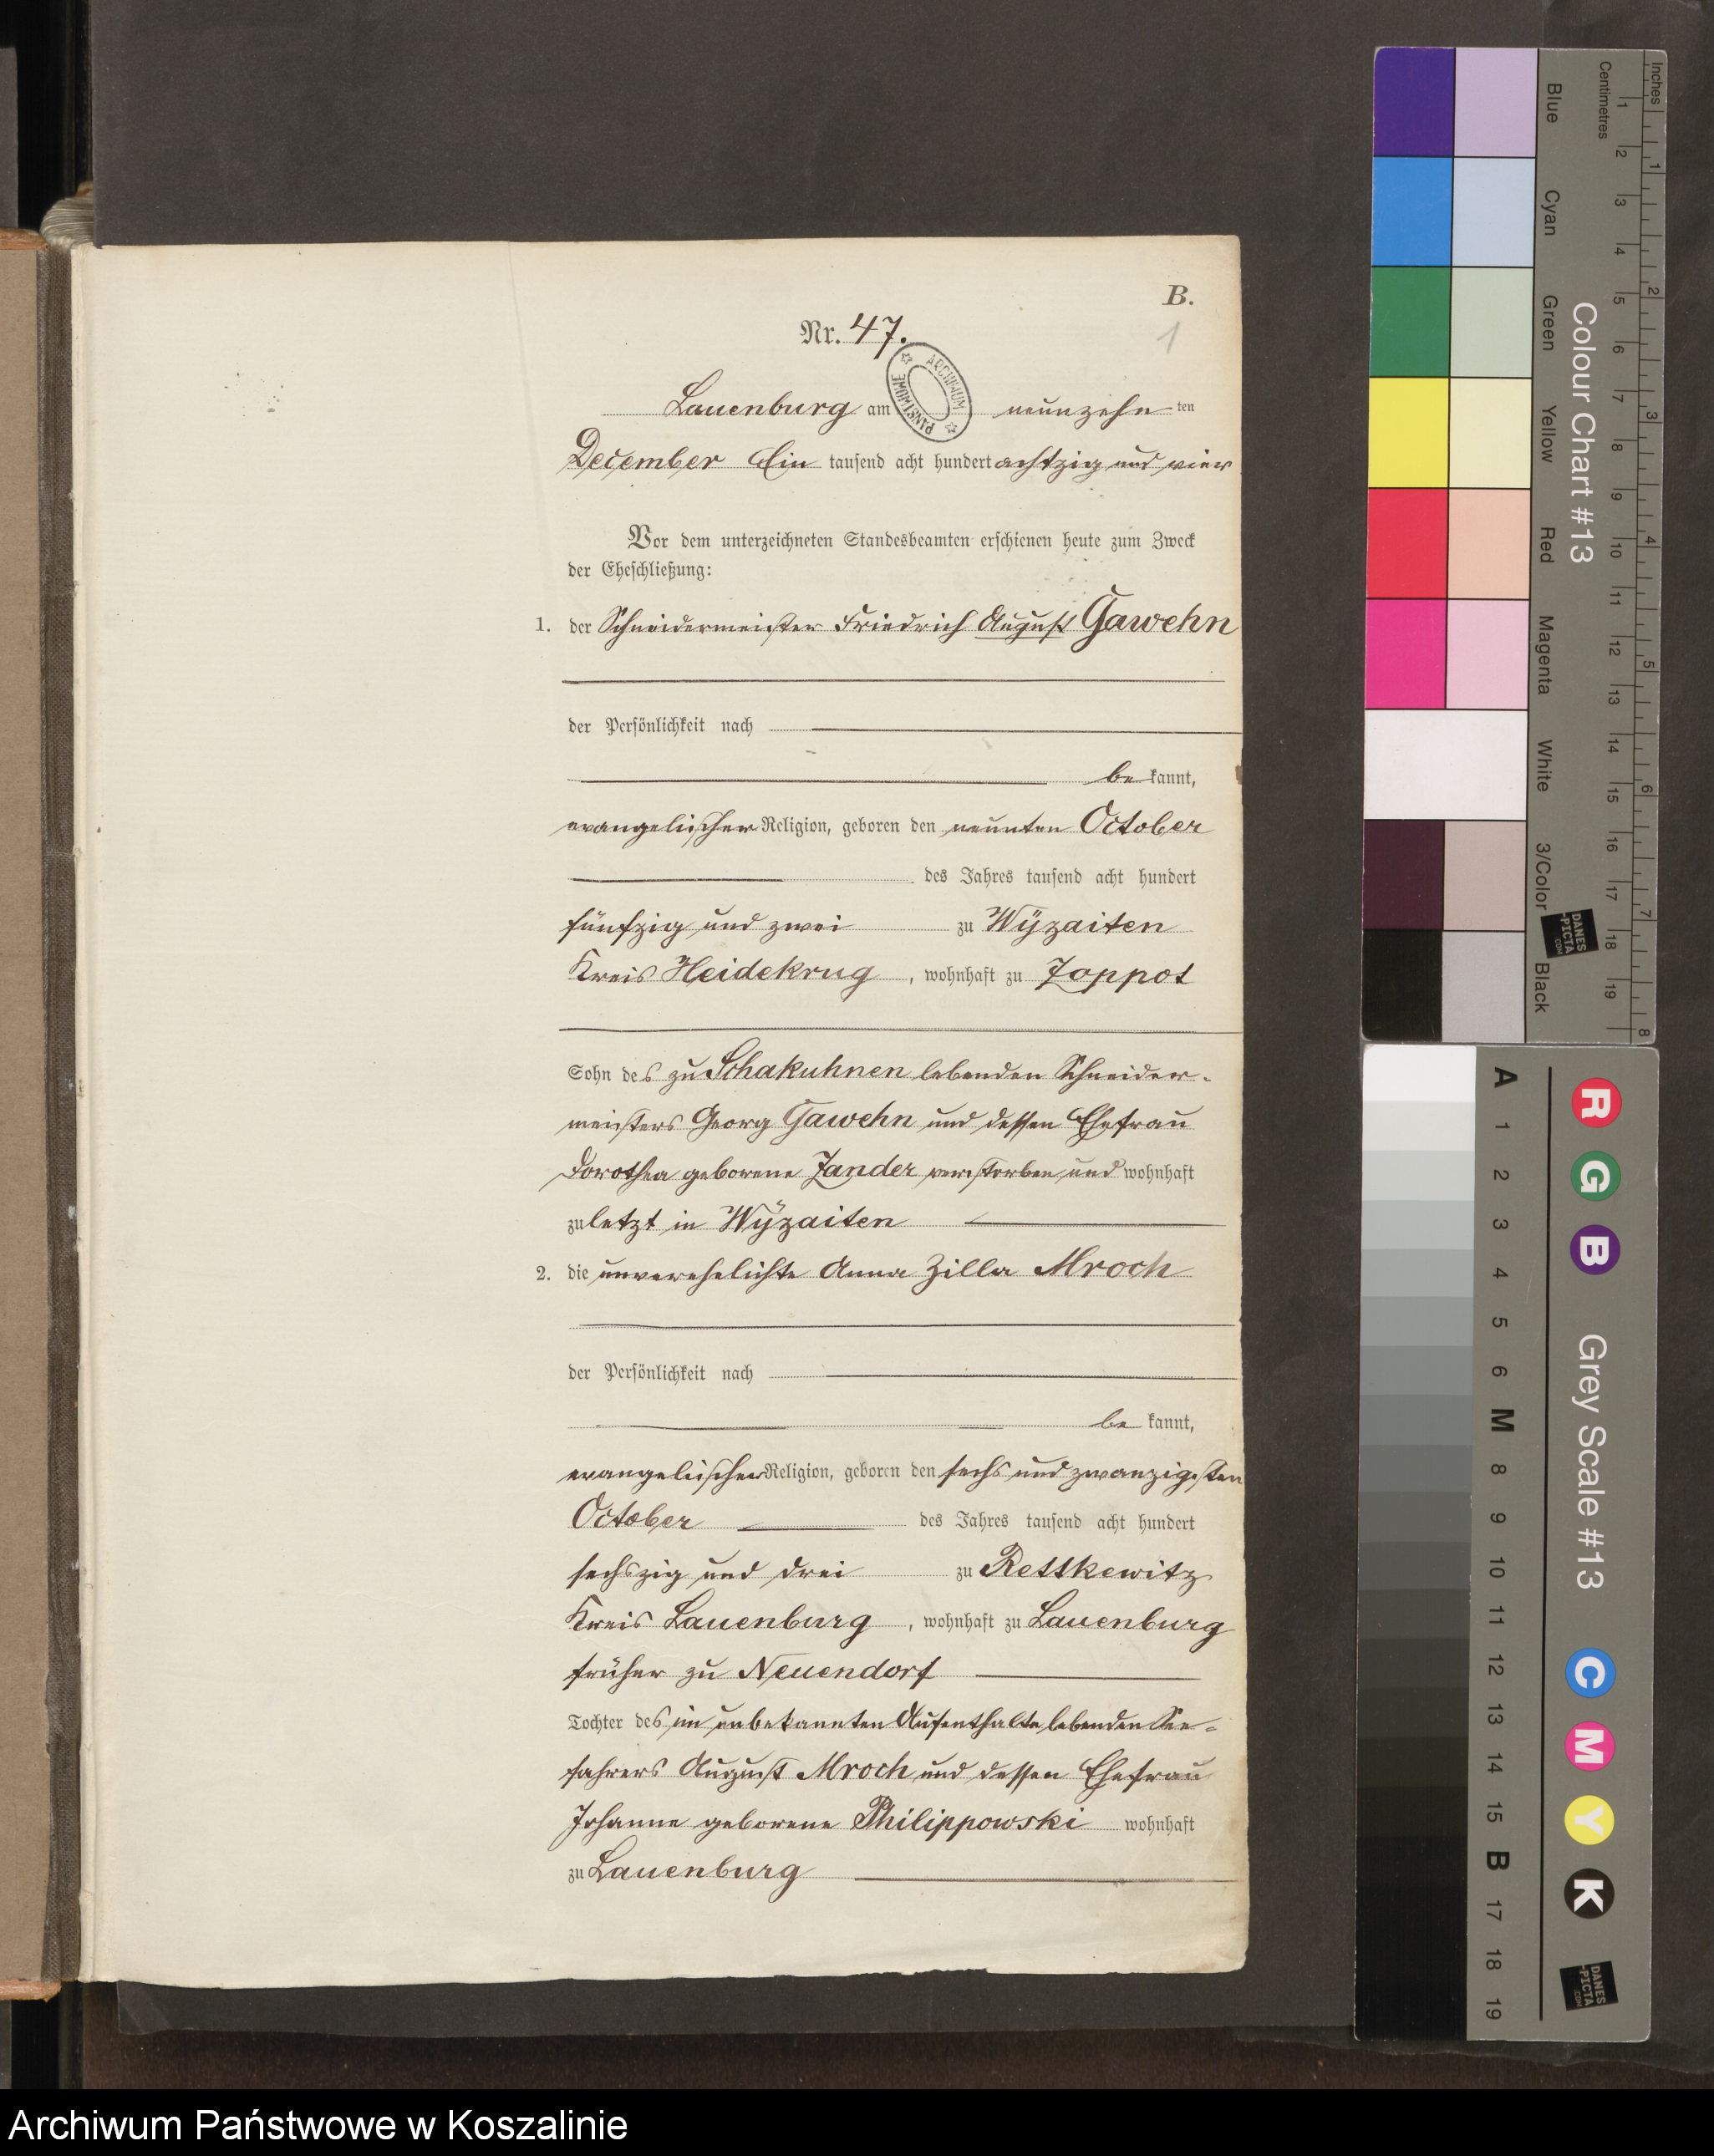 B.
Nr. 47.
1
ARCHIWUM PAŃSTWOWE
Lauenburg am neunzehn ten
December Ein tausend acht hundert achtzig und vier
Vor dem unterzeichneten Standesbeamten erschienen heute zum Zweck
der Eheschließung:
1. der Schneidermeister Friedrich August Gawehn
der Persönlichkeit nach
be kannt,
evangelischer Religion, geboren den neunten October
des Jahres tausend acht hundert
fünfzig und zwei zu Wÿzaiten
Kreis Heidekrug, wohnhaft zu Zoppot
Sohn des zu Schakuhnen lebenden Schneider-
meisters Georg Gawehn und dessen Ehefrau
Dorothea geborene Zander verstorben und wohnhaft
zuletzt in Wÿzaiten
2. die unverehelichte Anna Zilla Mroch
der Persönlichkeit nach
be kannt,
evangelischer Religion, geboren den sechs und zwanzigsten
October des Jahres tausend acht hundert
sechszig und drei zu Rettkewitz
Kreis Lauenburg, wohnhaft zu Lauenburg
früher zu Neuendorf
Tochter des im unbekannten Aufenthalte lebenden See-
fahrers August Mroch und dessen Ehefrau
Johanne geborene Philippowski wohnhaft
zu Lauenburg
Inches 1 2 3 4 5 6 7 8
Centimetres 1 2 3 4 5 6 7 8 9 10 11 12 13 14 15 16 17 18 19
Colour Chart #13
Blue Cyan Green Yellow Red Magenta White 3/Color Black
DANES
-PICTA
.COM
Grey Scale #13
R G B C M Y K
A 1 2 3 4 5 6 M 8 9 10 11 12 13 14 15 B 17 18 19
DANES
-PICTA
.COM
Archiwum Państwowe w Koszalinie